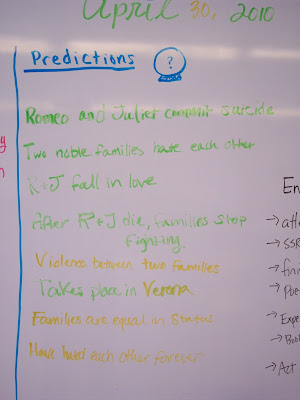 April 30, 2010
Predictions
?
Romeo and Juliet commit suicide
Two noble families hate each other
R+J fall in love
After R+J die, families stop
fighting.
Violence between two families
Takes place in Verona
Families are equal in status
Have hated each other forever
y
n
En
→ atte
→ SSR
→ finn
→ Poe
→ Expe
→ Act